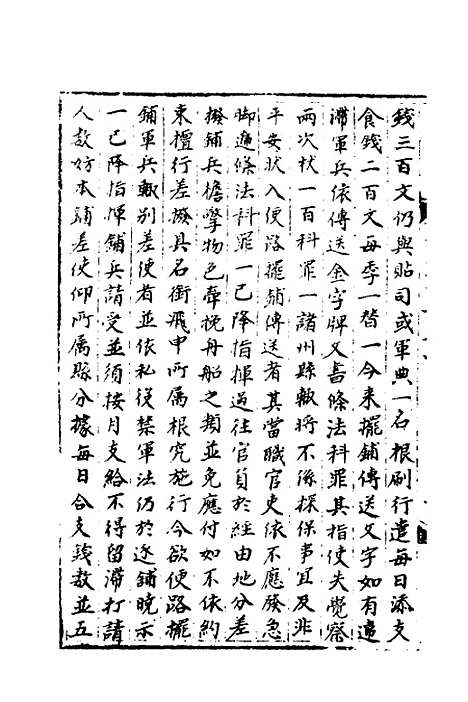 錢三百文仍與貼司或軍典一名根刷行遣每日添支
食錢二百文每季一替一今來擺鋪傳送文字如有違
滯軍兵依傳送金字牌文書條法科罪其指使失覺察
兩次杖一百科罪一諸州縣輒將不係探保事宜及非
平安狀入便路擺鋪傳送者其當職官吏依不應發急
脚遞條法科罪一已降指揮過往官員於經由地分差
撥鋪兵擔擎物色牽挽舟船之類並免應付如不依約
束擅行差撥具名銜飛申所屬根究施行今欲便路擺
鋪軍兵輒別差使者並依私役禁軍法仍於逐鋪曉示
一已降指揮鋪兵請受並須按月支給不得留滯打請
人數妨本鋪差使仰所属縣分據每日合支錢數並五